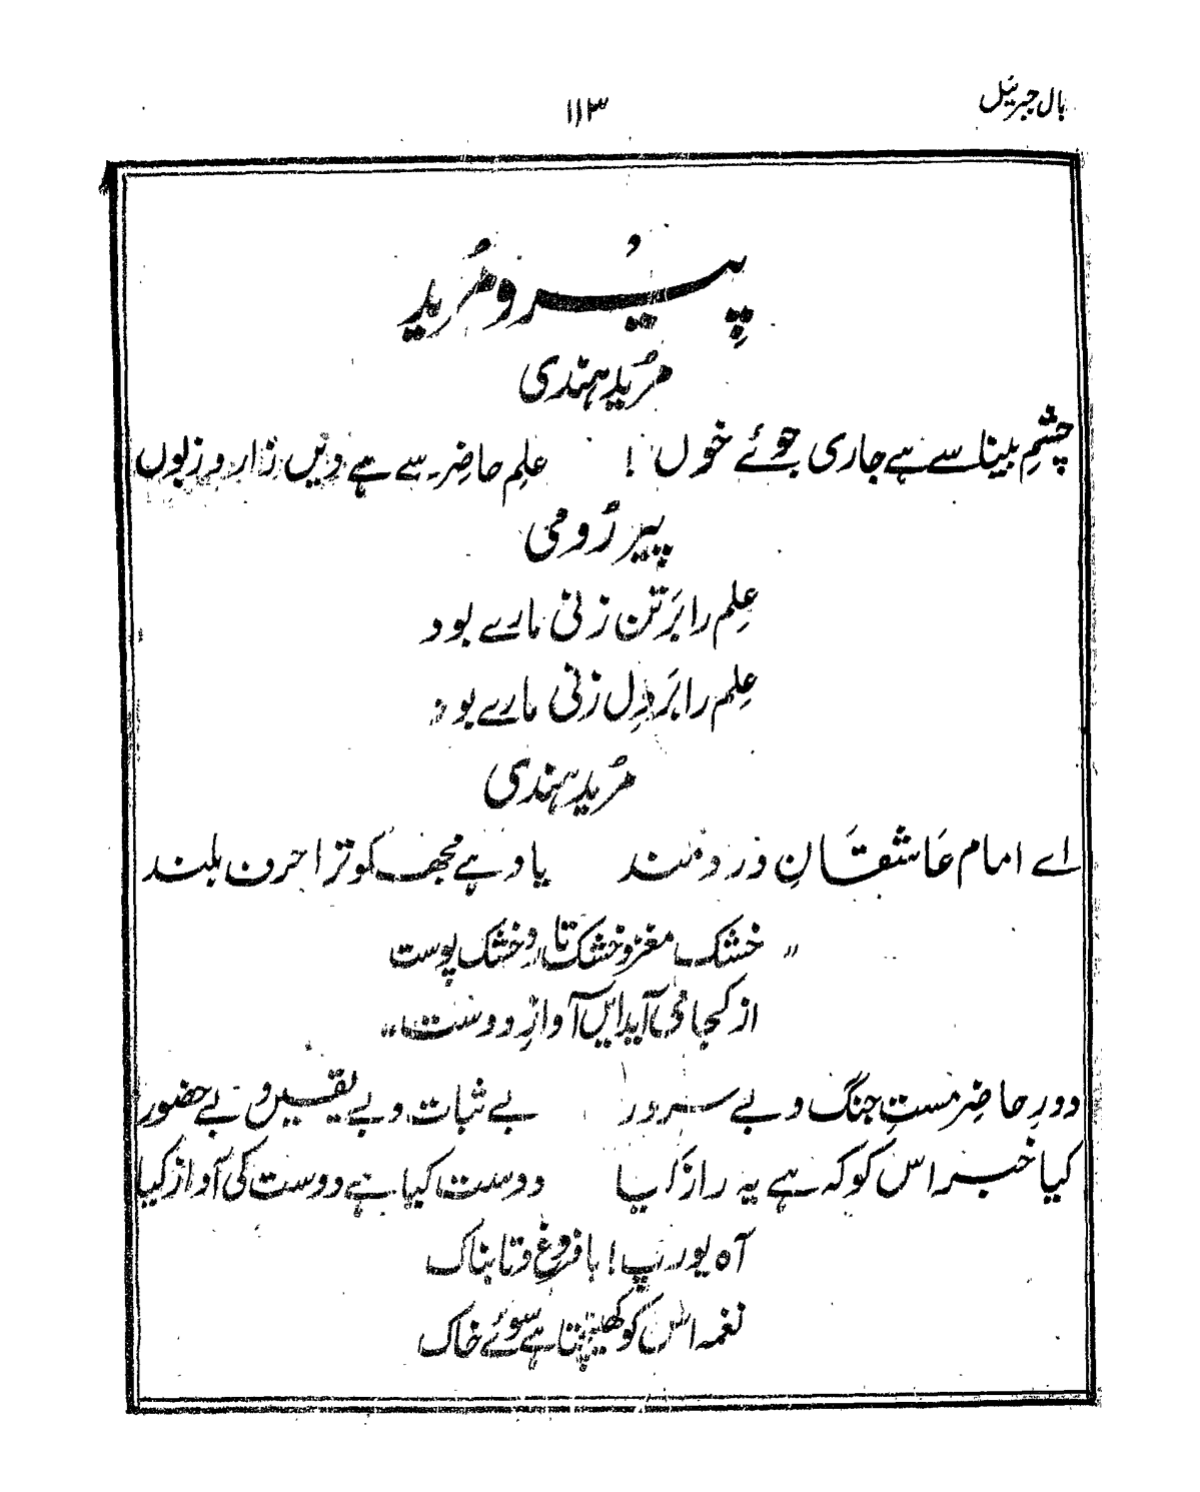 بال جبریل
۱۱۳
پیر و مُرید
مُرید ہندی
چشمِ بینا سے ہے جاری جوئے خوں ! علمِ حاضر سے ہے دیں زار و زبوں
پیر رُومی
عِلم را بَر تن زنی مارے بود
عِلم را بَر دِل زنی مارے بود
مُرید ہندی
اے امام عَاشقَانِ دردمند یاد ہے مجھ کو ترا حرف بلند
" خشک مغز و خشک تار و خشک پوست
از کجا می آید ایں آوازِ دوست"
دورِ حاضر مستِ چنگ و بے سرور بے ثبات و بے یقین و بے حضور
کیا خبر اس کو کہ ہے یہ راز کیا دوست کیا ہے دوست کی آواز کیا
آہ یورپ! بافروغ و تابناک
نغمہ اس کو کھینچتا ہے سوئے خاک